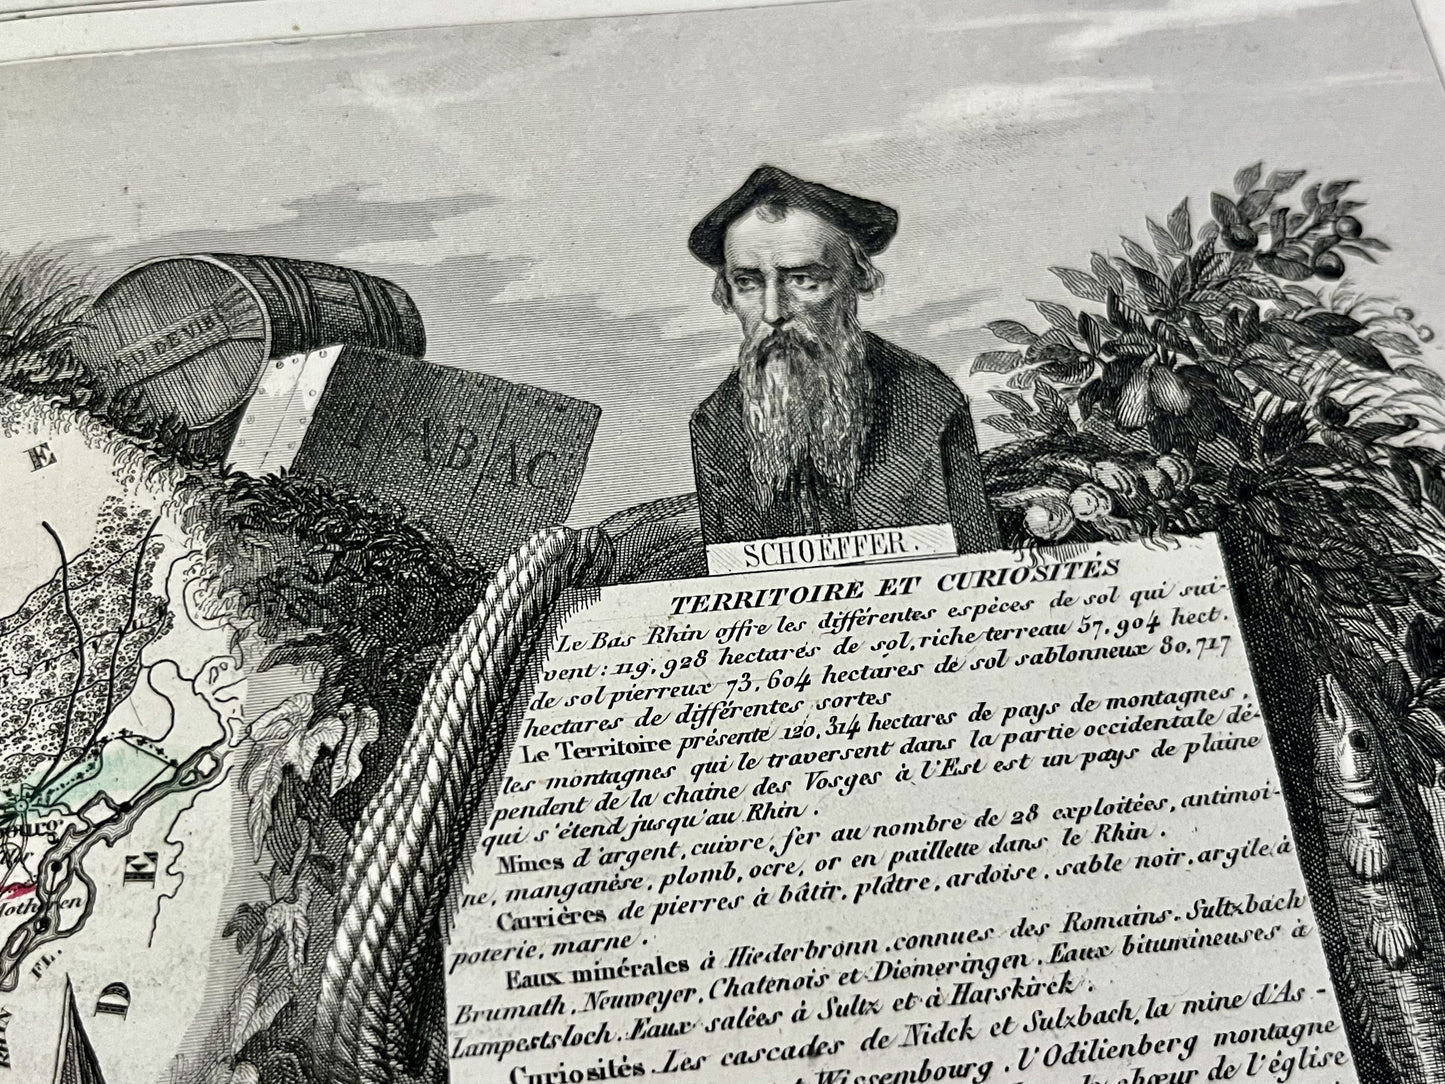 EAU DE VIE
TABAC
E
SCHOËFFER.
TERRITOIRE ET CURIOSITÉS
Le Bas Rhin offre les différentes espèces de sol qui sui-
vent : 119,928 hectares de sol, riche terreau 57,904 hect.
de sol pierreux 73,604 hectares de sol sablonneux 80,717
hectares de différentes sortes
Le Territoire présente 120,314 hectares de pays de montagnes,
les montagnes qui le traversent dans la partie occidentale dé-
pendent de la chaine des Vosges à l'Est est un pays de plaine
qui s'étend jusqu'au Rhin.
Mines d'argent, cuivre, fer au nombre de 28 exploitées, antimoi-
ne, manganèse, plomb, ocre, or en paillette dans le Rhin.
Carrières de pierres à bâtir, plâtre, ardoise, sable noir, argile à
poterie, marne.
Eaux minérales à Hiederbronn, connues des Romains. Sultxbach
Brumath, Neuweyer, Chatenois et Diemeringen. Eaux bitumineuses à
Lampestsloch. Eaux salées à Sultz et à Harskirck.
Curiosités. Les cascades de Nideck et Sulzbach, la mine d'As-
Wissembourg, l'Odilienberg montagne
chœur de l'église
K
D
FL.
RHIN